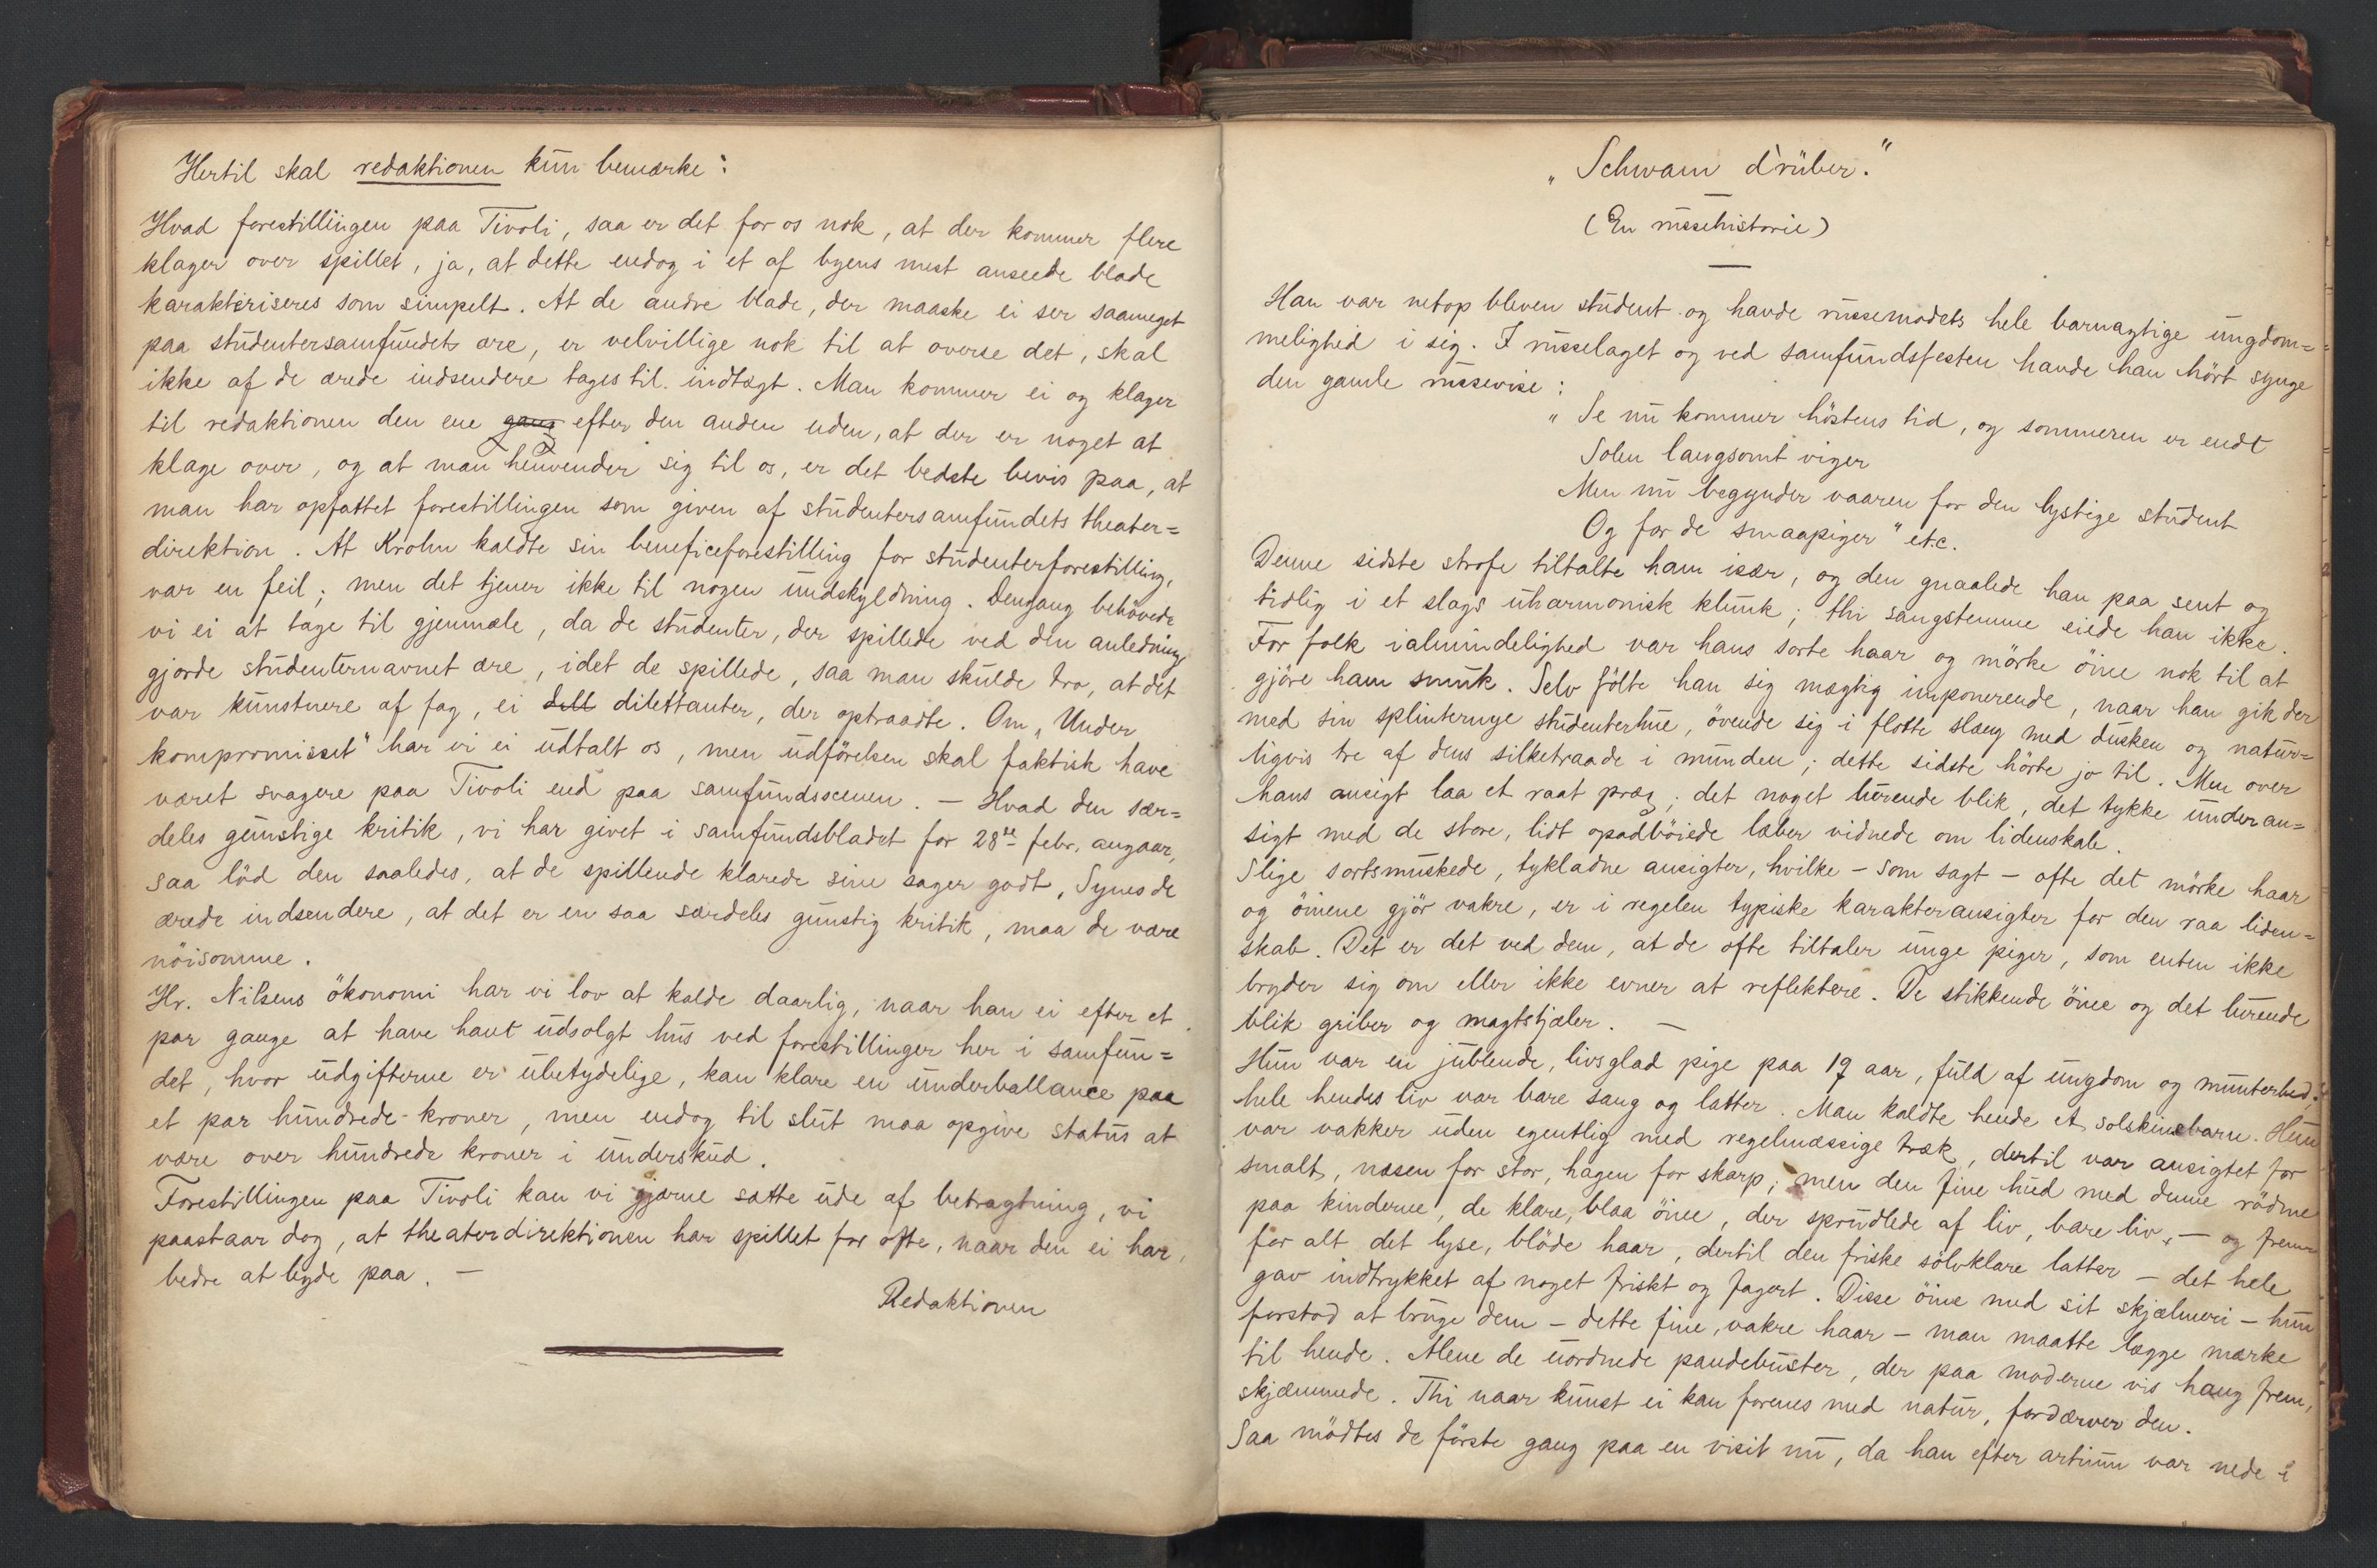 Hertil skal redaktionen kun bemærke:
Hvad forestillingen paa Tivoli, saa er det for os nok, at der kommer flere
klager over spillet, ja, at dette endog i et af byens mest anseede blade
karakteriseres som simpelt. At de andre blade, der maaske ei ser saameget
paa studentersamfundets ære, er velvillige nok til at overse det, skal
ikke af de ærede indsendere tages til indtægt. Man kommer ei og klager
til redaktionen den ene gang efter den anden uden, at der er noget at
klage over, og at man henvender sig til os, er det bedste bevis paa, at
man har opfattet forestillingen som given af studentersamfundets theater=
direktion. At Krohn kaldte sin beneficeforestilling for studenterforestilling,
var en feil; men det tjener ikke til nogen undskyldning. Dengang behövede
vi ei at tage til gjenmæle, da de studenter, der spillede ved den anledning
gjorde studenternavnet ære, idet de spillede, saa man skulde tro, at det
var kunstnere af fag, ei dell dilettanter, der optraadte. Om „Under
kompromisset" har vi ei udtalt os, men udförelsen skal faktisk have
været svagere paa Tivoli end paa samfundsscenen. – Hvad den sær=
deles gunstige kritik, vi har givet i samfundsbladet for 28de febr. angaar,
saa löd den saaledes, at de spillende klarede sine sager godt. Synes de
ærede indsendere, at det er en saa særdeles gunstig kritik, maa de være
nöisomme.
Hr. Nilsens ökonomi har vi lov at kalde daarlig, naar han ei efter et
par gange at have havt udsolgt hus ved forestillinger her i samfun=
det, hvor udgifterne er ubetydelige, kan klare en underballance paa
et par hundrede kroner, men endog til slut maa opgive status at
være over hundrede kroner i underskud.
Forestillingen paa Tivoli kan vi gjærne sætte ude af betragtning, vi
paastaar dog, at theaterdirektionen har spillet for ofte, naar den ei har
bedre at byde paa. –
Redaktionen
„Schwam d'rüber."
(En russehistorie)
Han var netop bleven student og havde russemodets hele barnagtige ungdom=
melighed i sig. I russelaget og ved samfundsfesten havde han hört synge
den gamle russevise:
„Se nu kommer höstens tid, og sommeren er endt
Solen langsomt viger
Men nu begynder vaaren for den lystige student
Og for de smaapiger" etc.
Denne sidste strofe tiltalte ham især, og den gnaalede han paa sent og
tidlig i et slags uharmonisk klunk; thi sangstemme eiede han ikke.
For folk i almindelighed var hans sorte haar og mörke öine nok til at
gjöre ham smuk. Selv fölte han sig mægtig imponerende, naar han gik der
med sin splinternye studenterhue, övende sig i flotte slæng med dusken og natur=
ligvis tre af dens silketraade i munden; dette sidste hörte jo til. Men over
hans ansigt laa et raat præg; det noget lurende blik, det tykke underan=
sigt med de store, lidt opadböiede læber vidnede om lidenskab.
Slige sortsmuskede, tykladne ansigter, hvilke – som sagt – ofte det mörke haar
og öinene gjör vakre, er i regelen typiske karakteransigter for den raa liden=
skab. Det er det ved dem, at de ofte tiltaler unge piger, som enten ikke
bryder sig om eller ikke evner at reflektere. De stikkende öine og det lurende
blik griber og magtstjæler. –
Hun var en jublende, livsglad pige paa 17 aar, fuld af ungdom og munterhed;
hele hendes liv var bare sang og latter. Man kaldte hende et solskinsbarn. Hun
var vakker uden egentlig med regelmæssige træk, dertil var ansigtet for
smalt, næsen for stor, hagen for skarp; men den fine hud med denne rödme
paa kinderne, de klare, blaa öine, der sprudlede af liv, bare liv, – og frem
for alt det lyse, blöde haar, dertil den friske sölvklare latter – det hele
gav indtrykket af noget friskt og fagert. Disse öine med sit skjælmeri – hun
forstod at bruge dem – dette fine, vakre haar – man maatte lægge mærke
til hende. Alene de uordnede pandebuster, der paa moderne vis hang frem,
skjæmmede. Thi naar kunst ei kan forenes med natur, fordærver den.
Saa mödtes de förste gang paa en visit nu, da han efter artium var nede i